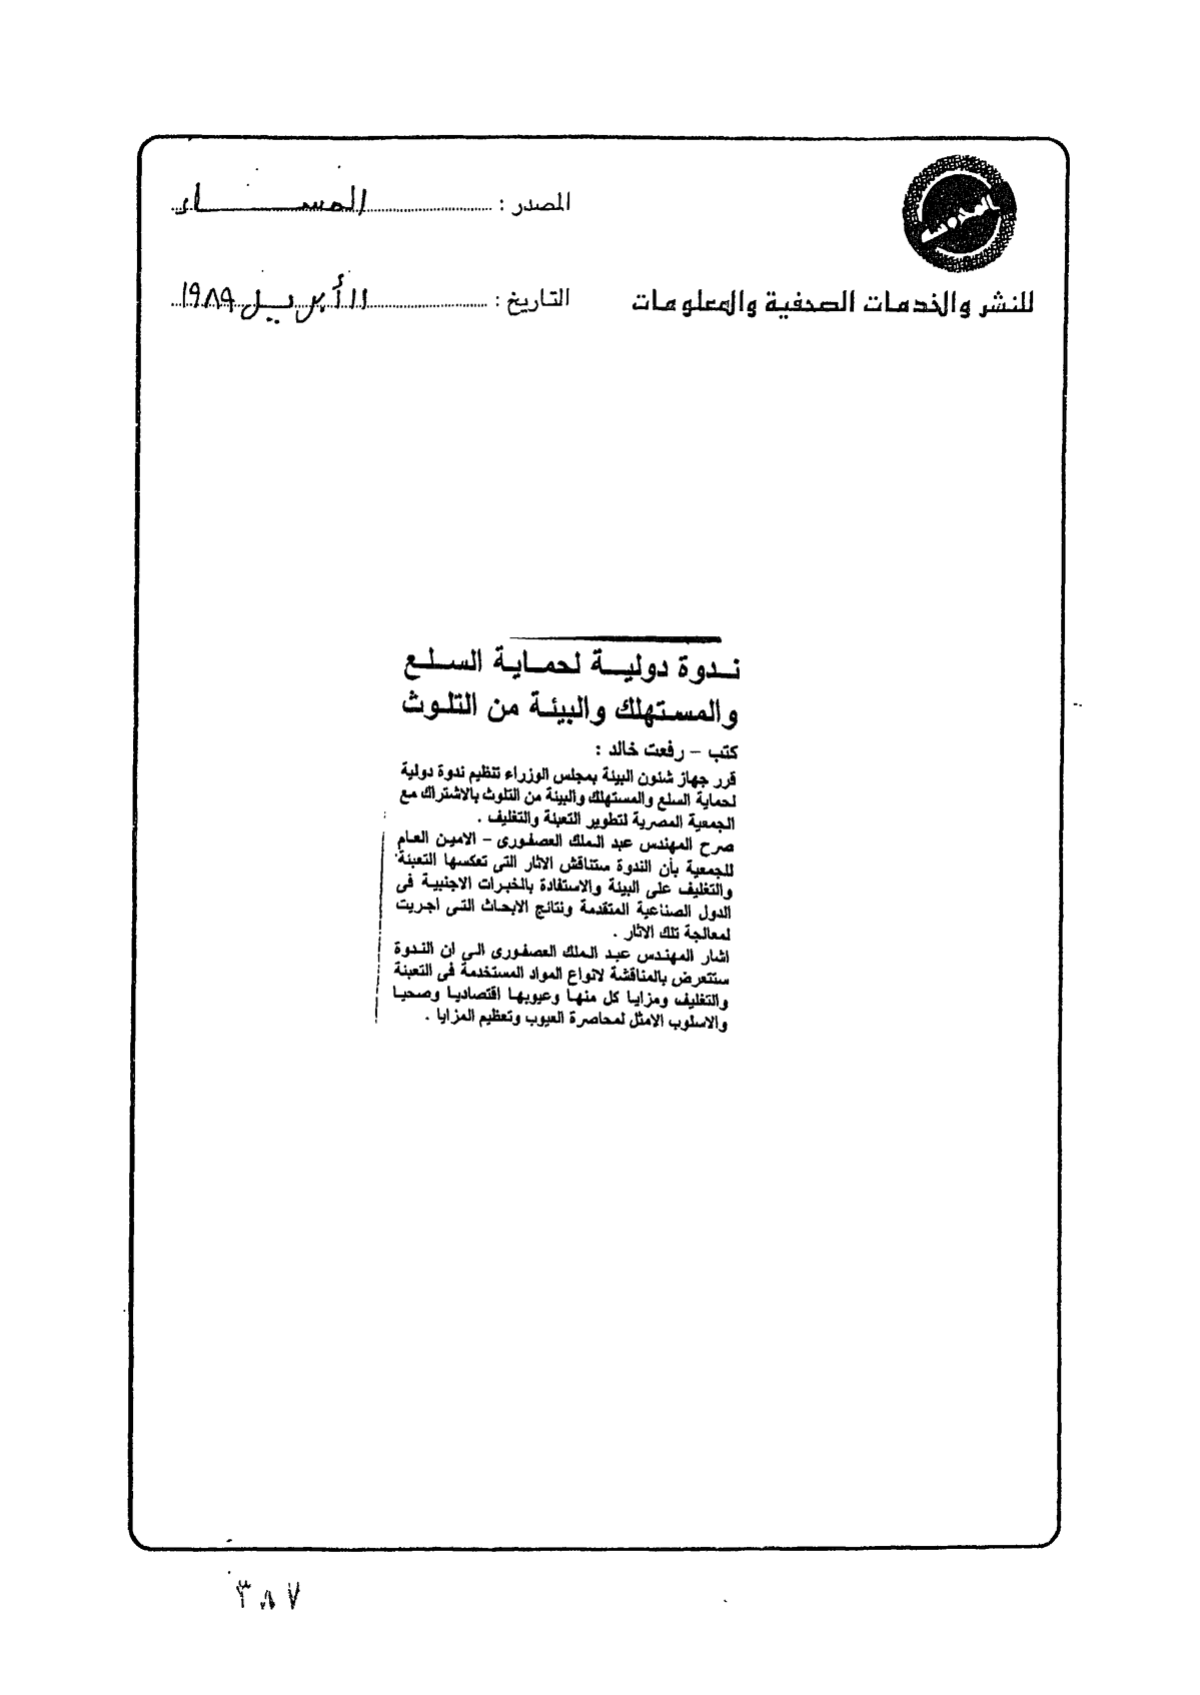 المصدر : المساء
للنشر والخدمات الصحفية والمعلومات
التاريخ : ١١ أبريل ١٩٨٩
ندوة دولية لحماية السلع
والمستهلك والبيئة من التلوث
كتب – رفعت خالد :
قرر جهاز شئون البيئة بمجلس الوزراء تنظيم ندوة دولية
لحماية السلع والمستهلك والبيئة من التلوث بالاشتراك مع
الجمعية المصرية لتطوير التعبئة والتغليف .
صرح المهندس عبد الملك العصفورى – الامين العام
للجمعية بأن الندوة ستناقش الاثار التى تعكسها التعبئة
والتغليف على البيئة والاستفادة بالخبرات الاجنبية فى
الدول الصناعية المتقدمة ونتائج الابحاث التى اجريت
لمعالجة تلك الاثار .
اشار المهندس عبد الملك العصفورى الى ان الندوة
ستتعرض بالمناقشة لانواع المواد المستخدمة فى التعبئة
والتغليف ومزايا كل منها وعيوبها اقتصاديا وصحيا
والاسلوب الامثل لمحاصرة العيوب وتعظيم المزايا .
٣٨٧